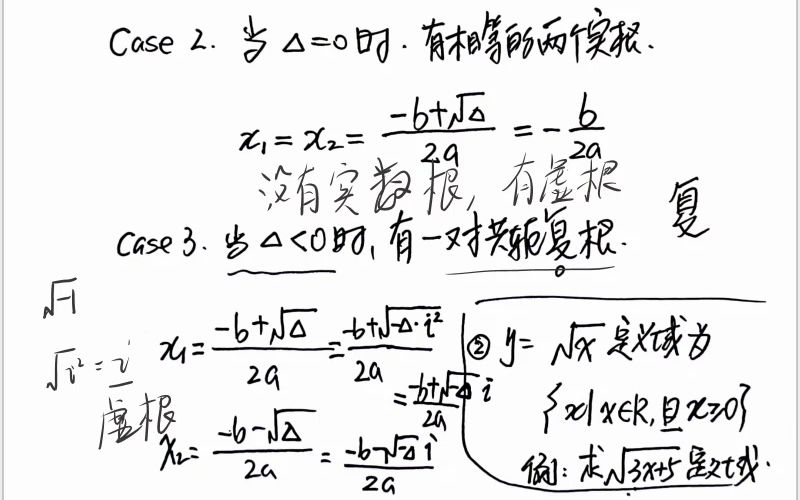 Case 2. 当 Δ=0时. 有相等的两个实根.
x₁ = x₂ = (-b+√Δ)/2a = -b/2a
没有实数根, 有虚根
复
Case 3. 当 Δ<0时, 有一对共轭复根.
√-1
√i² = i
虚根
x₁ = (-b+√Δ)/2a = (-b+√-Δ·i²)/2a
= (-b+√-Δ i)/2a
x₂ = (-b-√Δ)/2a = (-b-√-Δ i)/2a
② y= √x 定义域为
{x|x∈R,且x≥0}
例: 求√3x+5 定义域.